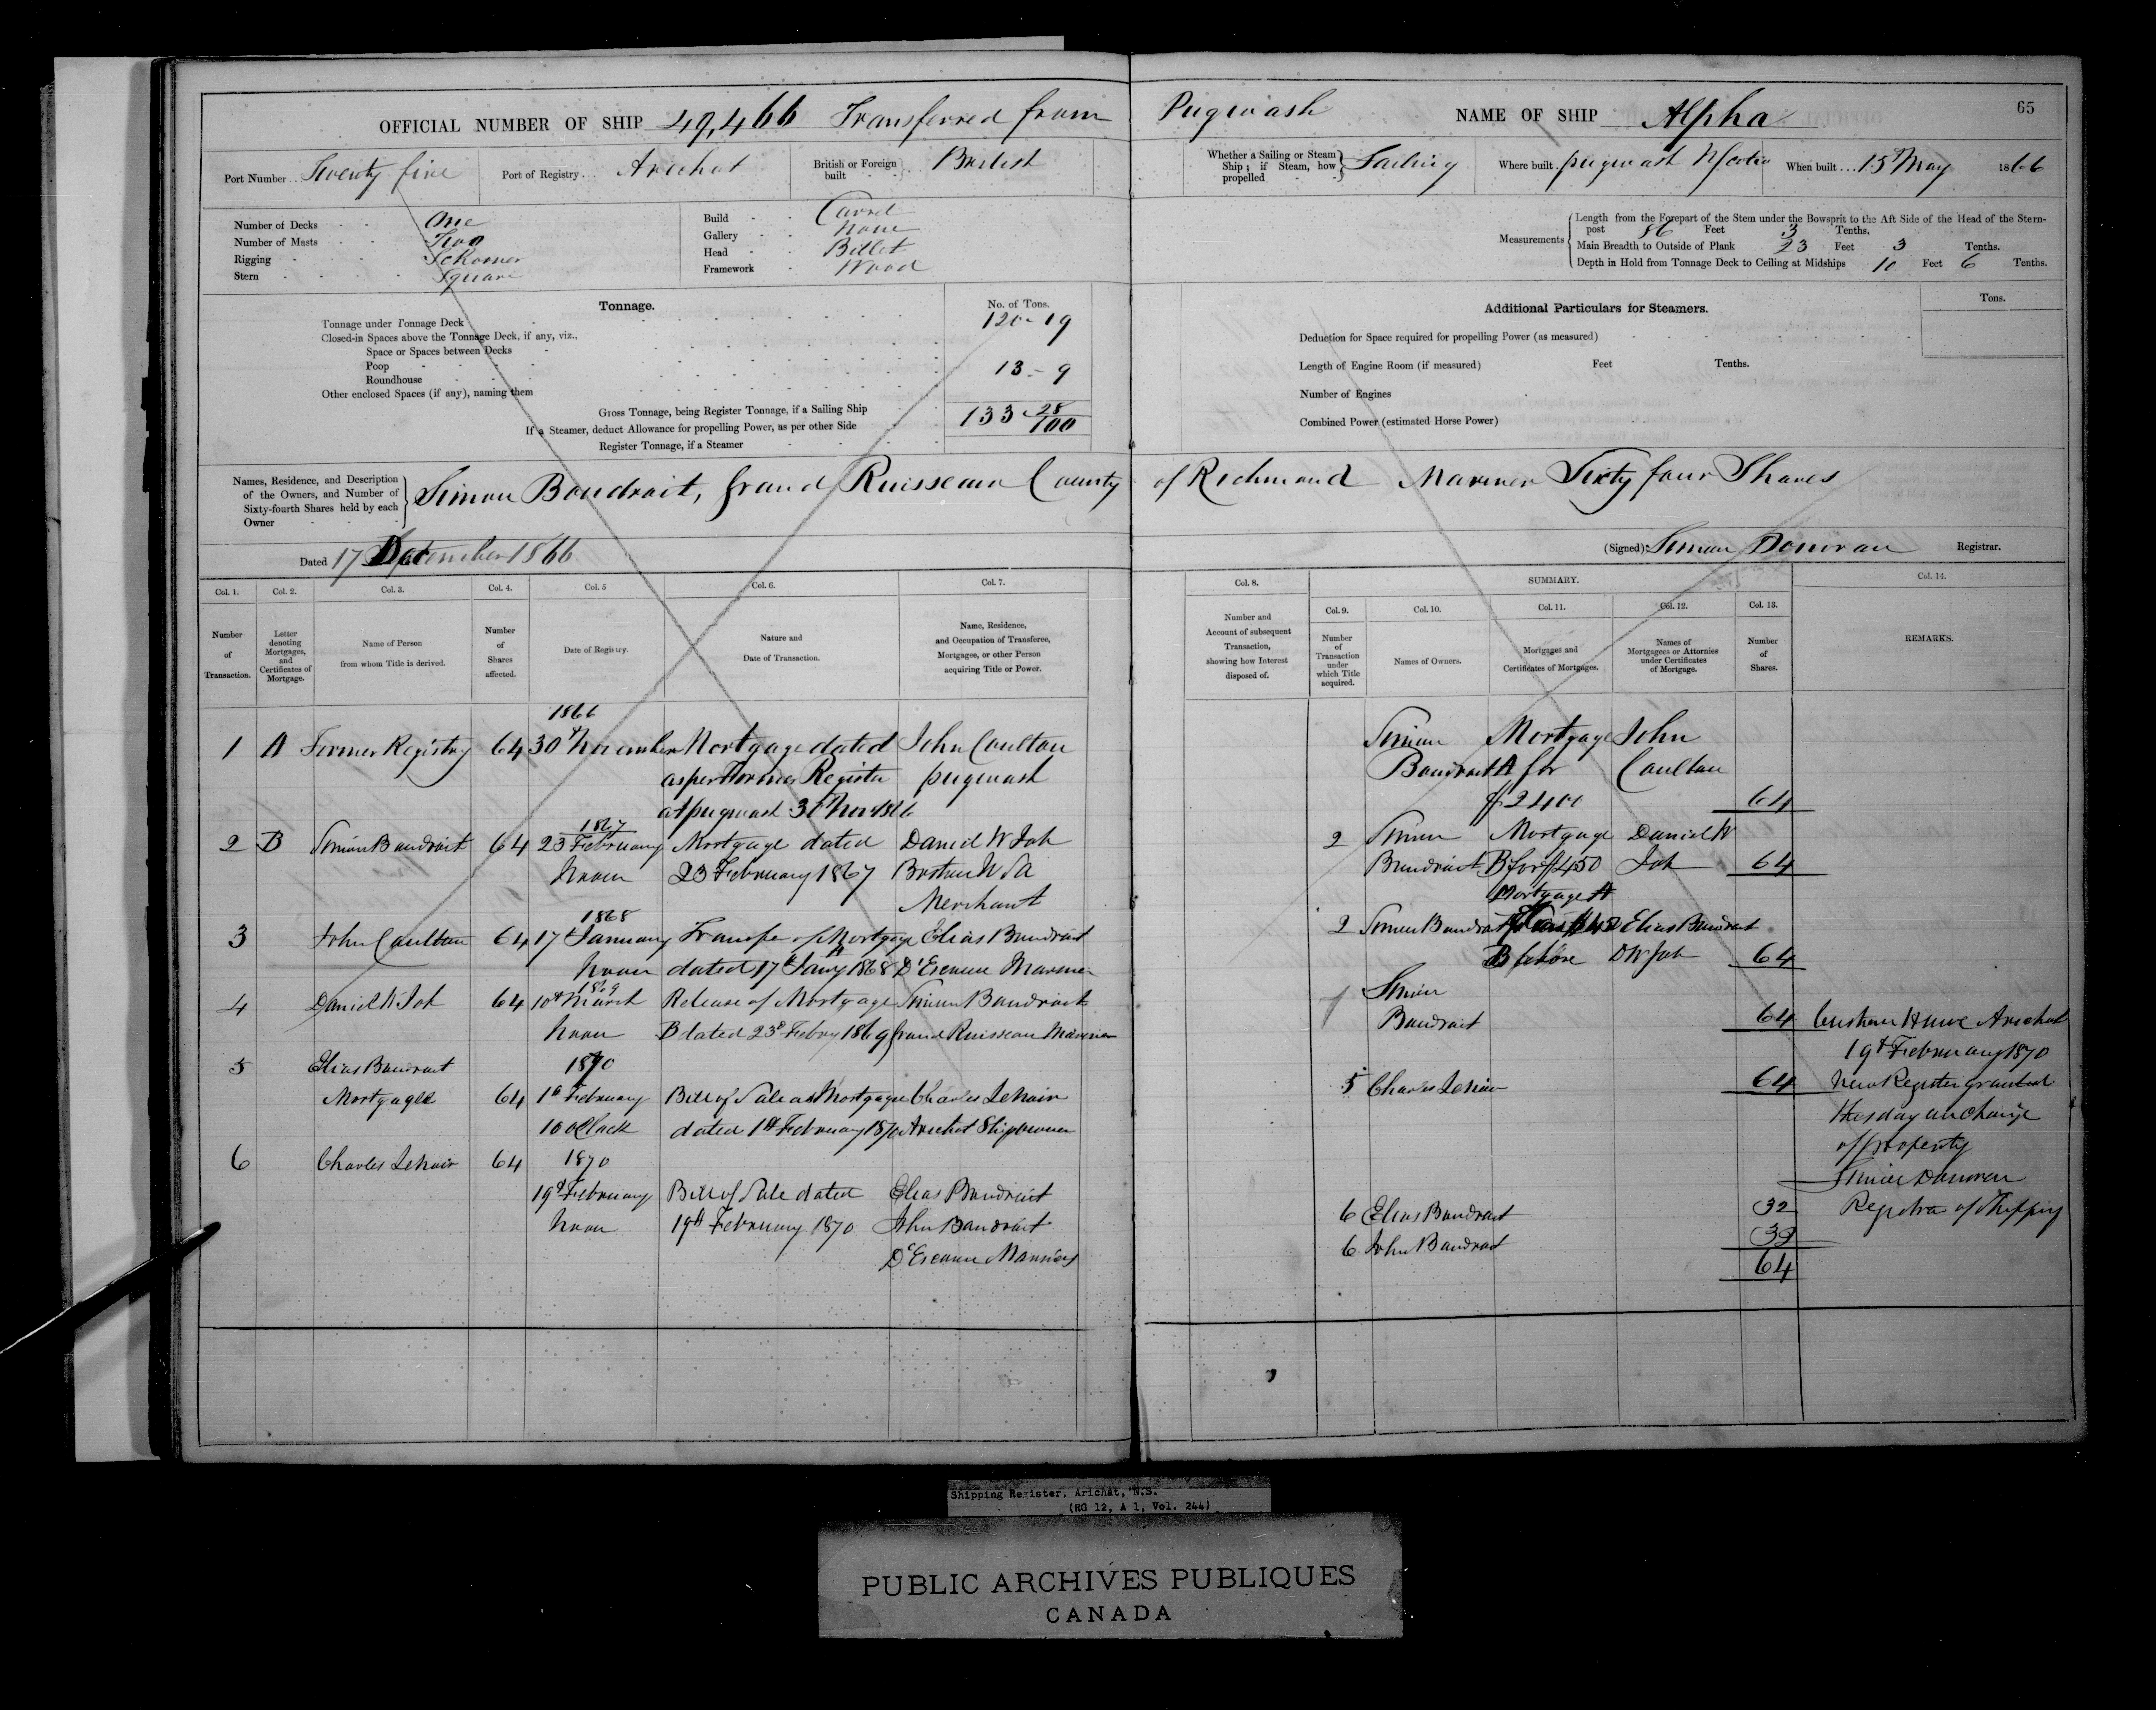 OFFICIAL NUMBER OF SHIP 49,466 Transferred from Pugwash NAME OF SHIP Alpha 65
Port Number Twenty five Port of Registry Arichat British or Foreign built British
Whether a Sailing or Steam Ship; if Steam, how propelled Sailing Where built pugwash NScotia When built 15th May 1866
Number of Decks One
Number of Masts Two
Rigging Schooner
Stern Square
Build Carvel
Gallery None
Head Billet
Framework Wood
Measurements
Length from the Forepart of the Stem under the Bowsprit to the Aft Side of the Head of the Stern-
post 86 Feet 3 Tenths.
Main Breadth to Outside of Plank 23 Feet 3 Tenths.
Depth in Hold from Tonnage Deck to Ceiling at Midships 10 Feet 6 Tenths.
Tonnage. No. of Tons.
Tonnage under Tonnage Deck 120-19
Closed-in Spaces above the Tonnage Deck, if any, viz.,
Space or Spaces between Decks
Poop 13-9
Roundhouse
Other enclosed Spaces (if any), naming them
Gross Tonnage, being Register Tonnage, if a Sailing Ship 133 28/100
If a Steamer, deduct Allowance for propelling Power, as per other Side
Register Tonnage, if a Steamer
Additional Particulars for Steamers. Tons.
Deduction for Space required for propelling Power (as measured)
Length of Engine Room (if measured) Feet Tenths.
Number of Engines
Combined Power (estimated Horse Power)
Names, Residence, and Description
of the Owners, and Number of
Sixty-fourth Shares held by each
Owner
Simon Boudroit, Grand Ruisseau County of Richmond Mariner Sixty four Shares
Dated 17 December 1866
(Signed) Simon Donovan Registrar.
Col. 1. Col. 2. Col. 3. Col. 4. Col. 5 Col. 6. Col. 7.
Number of Transaction.
Letter denoting Mortgages, and Certificates of Mortgage.
Name of Person from whom Title is derived.
Number of Shares affected.
Date of Registry.
Nature and Date of Transaction.
Name, Residence, and Occupation of Transferee, Mortgagee, or other Person acquiring Title or Power.
Col. 8. SUMMARY. Col. 14.
Col. 9. Col. 10. Col. 11. Col. 12. Col. 13.
Number and Account of subsequent Transaction, showing how Interest disposed of.
Number of Transaction under which Title acquired.
Names of Owners.
Mortgages and Certificates of Mortgages.
Names of Mortgagees or Attornies under Certificates of Mortgage.
Number of Shares.
REMARKS.
1866
1 A Former Registry 64 30th November Mortgage dated John Coulton
as per Former Register pugwash
at pugwash 30th Nov 1866
1867
2 B Simon Boudroit 64 23 February Mortgage dated Daniel W Job
Noon 23 February 1867 Boston U SA
Merchant
1868
3 John Coulton 64 17th January Transfer of Mortgage Elias Boudroit
A
Noon dated 17th Jany 1868 D'Escouse Mariner
1869
4 Daniel W Job 64 10th March Release of Mortgage Simon Boudroit
Noon B dated 23d Febry 1869 Grand Ruisseau Mariner
5 Elias Boudroit 1870
Mortgagee 64 1st February Bill of Sale as Mortgagee Charles LeNoir
10 oClock dated 1st February 1870 Arichat Shipowner
6 Charles LeNoir 64 1870
19th February Bill of Sale dated Elias Boudroit
Noon 19th February 1870 John Boudroit
D'Escouse Mariners
Simon Mortgage John
Boudroit A for Coulton
$2400 64
2 Simon Mortgage Daniel W
Boudroit B for $450 Job 64
Mortgage A
2 Simon Boudroit Elias Boudroit
B DW Job 64
Simon
Boudroit 64
5 Charles LeNoir 64
6 Elias Boudroit 32
6 John Boudroit 32
64
Custom House Arichat
19th February 1870
New Register granted
this day on change
of property
Simon Donovan
Registrar of Shipping
Shipping Register, Arichat, N.S.
(RG 12, A 1, Vol. 244)
PUBLIC ARCHIVES PUBLIQUES
CANADA